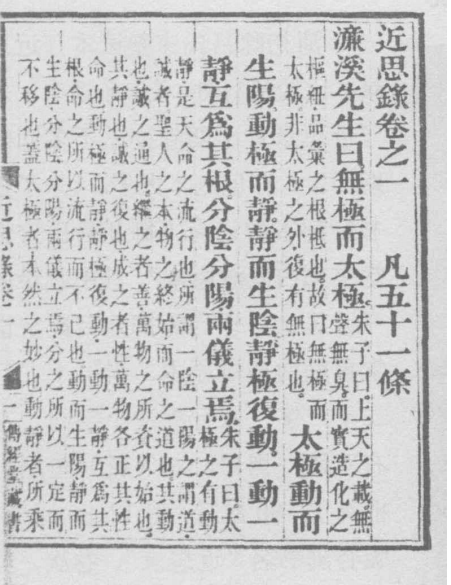 近思錄卷之一　凡五十一條
濂溪先生曰無極而太極。朱子曰。上天之載。無
聲無臭。而實造化之
樞紐品彙之根柢也。故曰無極而
太極。非太極之外復有無極也。太極動而
生陽。動極而靜。靜而生陰。靜極復動。一動一
靜互爲其根。分陰分陽。兩儀立焉。朱子曰。太
極之有動
靜。是天命之流行也。所謂一陰一陽之謂道。
誠者聖人之本。物之終始。而命之道也。其動
也。誠之通也。繼之者善。萬物之所資以始也。
其靜也。誠之復也。成之者性。萬物各正其性
命也。動極而靜。靜極復動。一動一靜。互爲其
根。命之所以流行而不已也。動而生陽。靜而
生陰。分陰分陽。兩儀立焉。分之所以一定而
不移也。蓋太極者。本然之妙也。動靜者。所乘
近思錄卷一
一